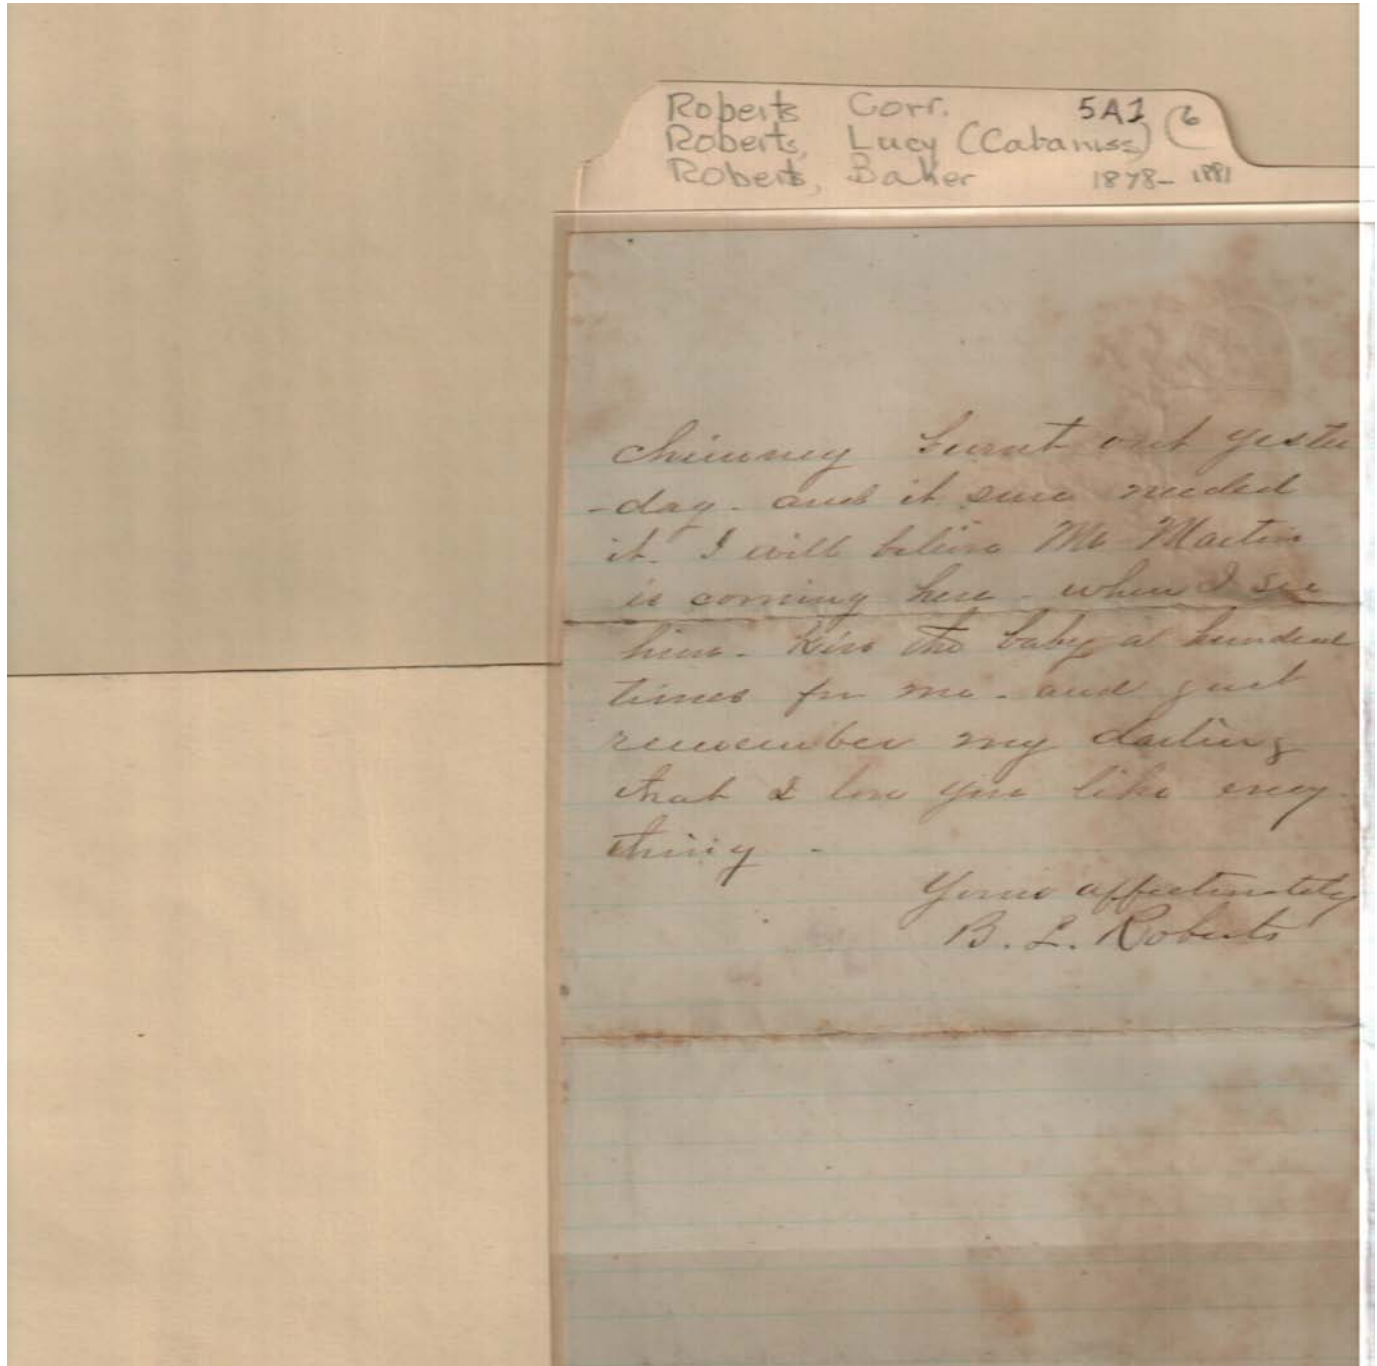 Roberts Corr. 5A1 (6
Roberts, Lucy (Cabaniss)
Roberts, Baker 1878-1881
chimney burnt out yester
-day - and it sure needed
it. I will believe Mr Martin
is coming here - when I see
him - Kiss the baby a hundred
times for me - and just
remember my darling
that I love you like every-
thing -
Yours affectionately
B. L. Roberts